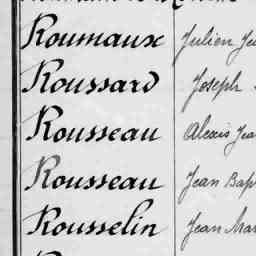 Roumaux Julien
Roussard Joseph
Rousseau Alexis Jea
Rousseau Jean Bap
Rousselin Jean Mar